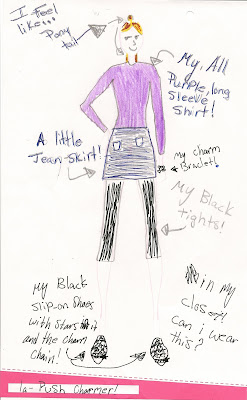 I feel
like...
Pony
tail
My, All
Purple, long
sleeve
Shirt!
A little
Jean-Skirt!
my charm
Braclet!
My Black
tights!
My Black
Slip-on Shoes
with Stars it
and the charm
Chain!
in my
closet!
Can i wear
this?
la- Push Charmer!